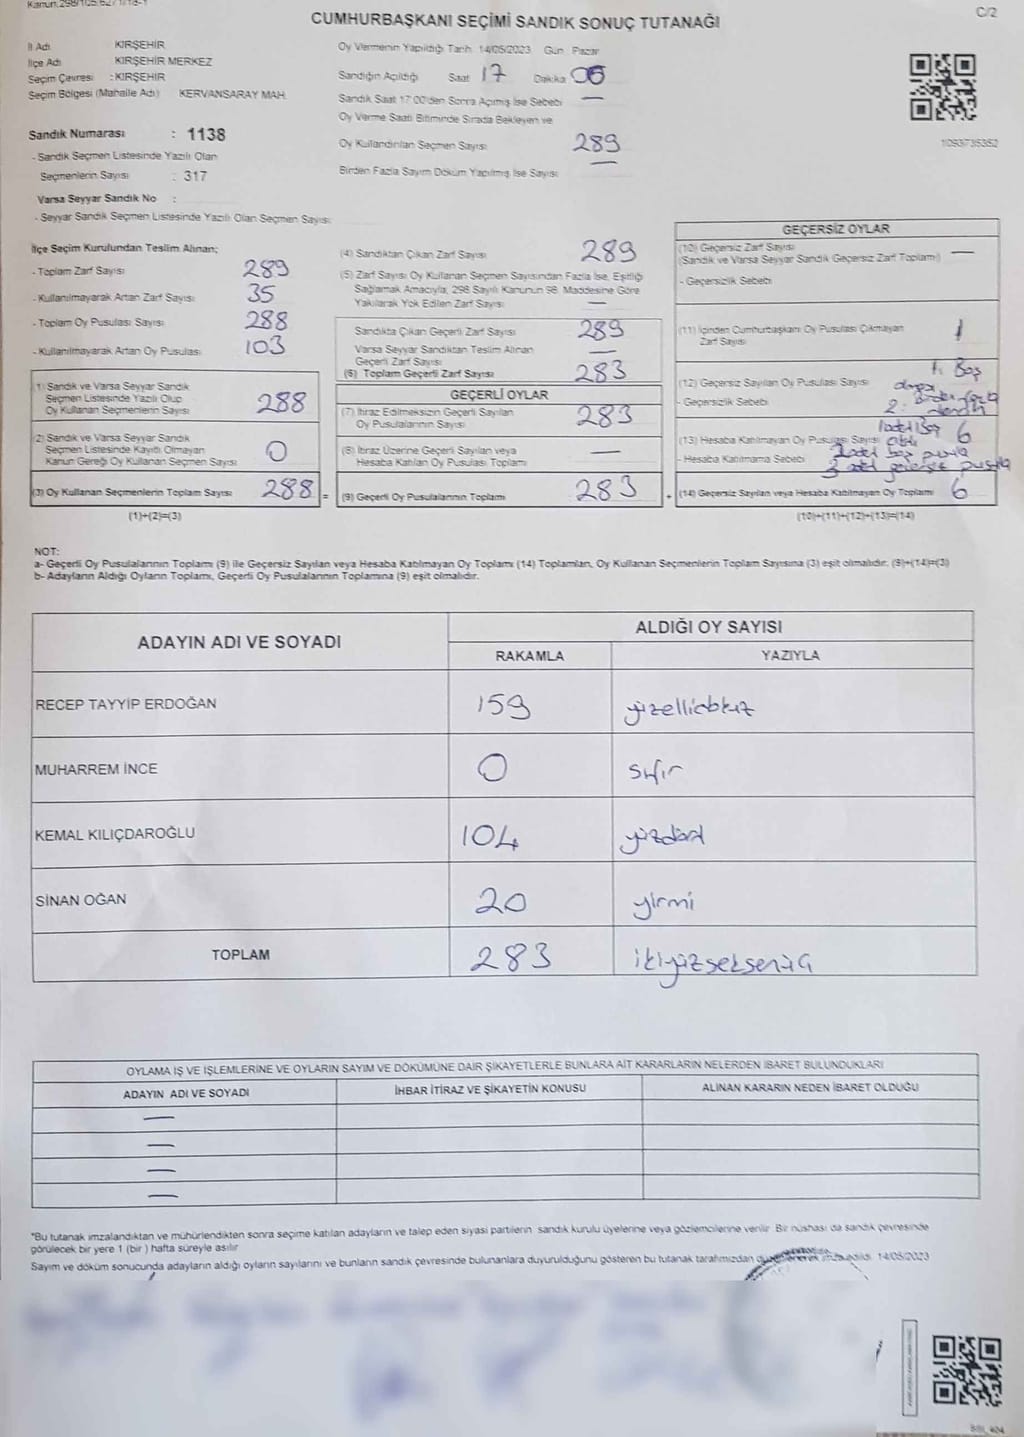 CUMHURBAŞKANI SEÇİMİ SANDIK SONUÇ TUTANAĞI
C/2
İl Adı KIRŞEHİR
İlçe Adı KIRŞEHİR MERKEZ
Seçim Çevresi : KIRŞEHİR
Seçim Bölgesi (Mahalle Adı) KERVANSARAY MAH.
Sandık Numarası : 1138
- Sandık Seçmen Listesinde Yazılı Olan
Seçmenlerin Sayısı : 317
Varsa Seyyar Sandık No :
- Seyyar Sandık Seçmen Listesinde Yazılı Olan Seçmen Sayısı:
Oy Vermenin Yapıldığı Tarih 14/05/2023 Gün Pazar
Sandığın Açıldığı Saat 17 Dakika 06
Sandık Saat 17:00'den Sonra Açılmış İse Sebebi —
Oy Verme Saati Bitiminde Sırada Bekleyen ve
Oy Kullandırılan Seçmen Sayısı 289
Birden Fazla Sayım Döküm Yapılmış İse Sayısı —
1093735352
İlçe Seçim Kurulundan Teslim Alınan;
- Toplam Zarf Sayısı 289
- Kullanılmayarak Artan Zarf Sayısı 35
- Toplam Oy Pusulası Sayısı 288
- Kullanılmayarak Artan Oy Pusulası 103
(1) Sandık ve Varsa Seyyar Sandık
Seçmen Listesinde Yazılı Olup
Oy Kullanan Seçmenlerin Sayısı 288
(2) Sandık ve Varsa Seyyar Sandık
Seçmen Listesinde Kayıtlı Olmayan
Kanun Gereği Oy Kullanan Seçmen Sayısı 0
(3) Oy Kullanan Seçmenlerin Toplam Sayısı 288 =
(1)+(2)=(3)
(4) Sandıktan Çıkan Zarf Sayısı 289
(5) Zarf Sayısı Oy Kullanan Seçmen Sayısından Fazla İse, Eşitliği
Sağlamak Amacıyla, 298 Sayılı Kanunun 98. Maddesine Göre
Yakılarak Yok Edilen Zarf Sayısı —
Sandıkta Çıkan Geçerli Zarf Sayısı 289
Varsa Seyyar Sandıktan Teslim Alınan
Geçerli Zarf Sayısı —
(6) Toplam Geçerli Zarf Sayısı 283
GEÇERLİ OYLAR
(7) İtiraz Edilmeksizin Geçerli Sayılan
Oy Pusulalarının Sayısı 283
(8) İtiraz Üzerine Geçerli Sayılan veya
Hesaba Katılan Oy Pusulası Toplamı —
(9) Geçerli Oy Pusulalarının Toplamı 283 +
GEÇERSİZ OYLAR
(10) Geçersiz Zarf Sayısı
(Sandık ve Varsa Seyyar Sandık Geçersiz Zarf Toplamı) —
- Geçersizlik Sebebi
(11) İçinden Cumhurbaşkanı Oy Pusulası Çıkmayan
Zarf Sayısı 1
1. Boş
(12) Geçersiz Sayılan Oy Pusulası Sayısı
- Geçersizlik Sebebi 2.
1 adet Boş
(13) Hesaba Katılmayan Oy Pusulası Sayısı 6
- Hesaba Katılmama Sebebi 2 adet boş pusula
3 adet geçersiz pusula
(14) Geçersiz Sayılan veya Hesaba Katılmayan Oy Toplamı 6
(10)+(11)+(12)+(13)=(14)
NOT:
a- Geçerli Oy Pusulalarının Toplamı (9) ile Geçersiz Sayılan veya Hesaba Katılmayan Oy Toplamı (14) Toplamları, Oy Kullanan Seçmenlerin Toplam Sayısına (3) eşit olmalıdır. (9)+(14)=(3)
b- Adayların Aldığı Oyların Toplamı, Geçerli Oy Pusulalarının Toplamına (9) eşit olmalıdır.
ADAYIN ADI VE SOYADI
ALDIĞI OY SAYISI
RAKAMLA YAZIYLA
RECEP TAYYİP ERDOĞAN 159 yüzellidokuz
MUHARREM İNCE 0 sıfır
KEMAL KILIÇDAROĞLU 104 yüzdört
SİNAN OĞAN 20 yirmi
TOPLAM 283 ikiyüzseksenüç
OYLAMA İŞ VE İŞLEMLERİNE VE OYLARIN SAYIM VE DÖKÜMÜNE DAİR ŞİKAYETLERLE BUNLARA AİT KARARLARIN NELERDEN İBARET BULUNDUKLARI
ADAYIN ADI VE SOYADI İHBAR İTİRAZ VE ŞİKAYETİN KONUSU ALINAN KARARIN NEDEN İBARET OLDUĞU
—
—
—
—
*Bu tutanak imzalandıktan ve mühürlendikten sonra seçime katılan adayların ve talep eden siyasi partilerin sandık kurulu üyelerine veya gözlemcilerine verilir. Bir nüshası da sandık çevresinde
görülecek bir yere 1 (bir ) hafta süreyle asılır.
Sayım ve döküm sonucunda adayların aldığı oyların sayılarını ve bunların sandık çevresinde bulunanlara duyurulduğunu gösteren bu tutanak tarafımızdan düzenlenerek imza edildi. 14/05/2023